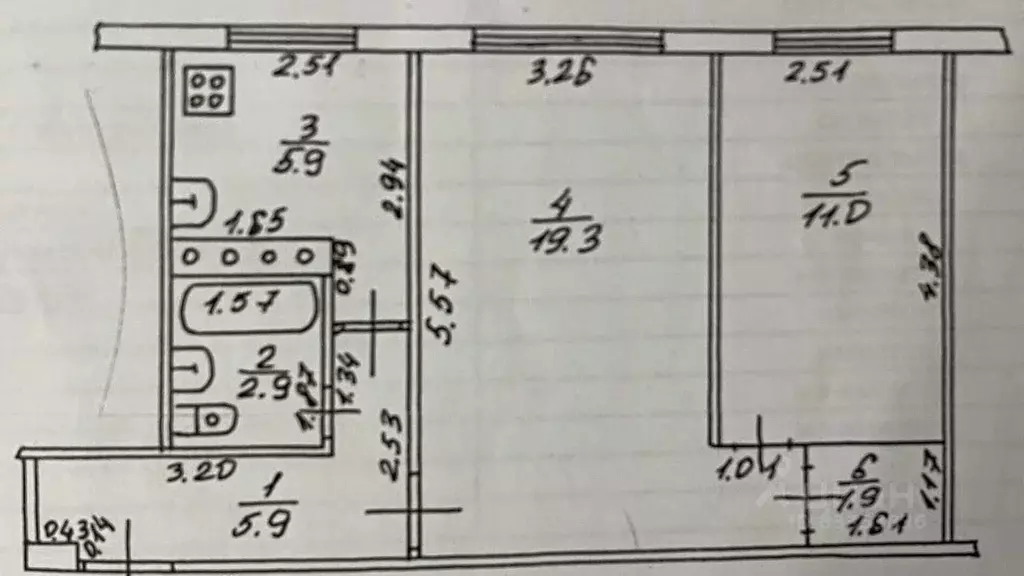 2.51
3.26
2.51
3
5.9
2.94
1.65
0.89
4
19.3
5
11.0
4.38
5.57
1.57
2
2.9
1.87
1.34
2.53
3.20
1
5.9
0.43
0.14
1.01
6
1.9
1.17
1.61